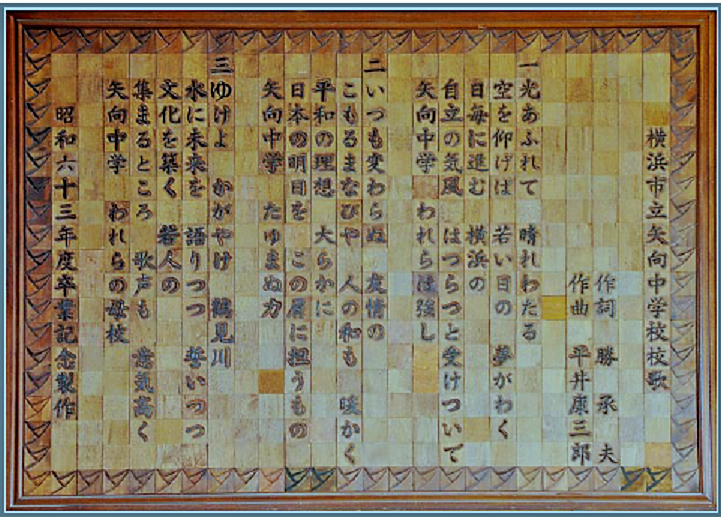 横浜市立矢向中学校校歌
作詞 勝承夫
作曲 平井康三郎
一 光あふれて 晴れわたる
空を仰げば 若い日の 夢がわく
日毎に進む 横浜の
自立の気風 はつらつと受けついで
矢向中学 われらは強し
二 いつも変わらぬ 友情の
こもるまなびや 人の和も 暖かく
平和の理想 大らかに
日本の明日を この肩に担うもの
矢向中学 たゆまぬ力
三 ゆけよ かがやけ 鶴見川
水に未来を 語りつつ 誓いつつ
文化を築く 若人の
集まるところ 歌声も 意気高く
矢向中学 われらの母校
昭和六十三年度卒業記念製作